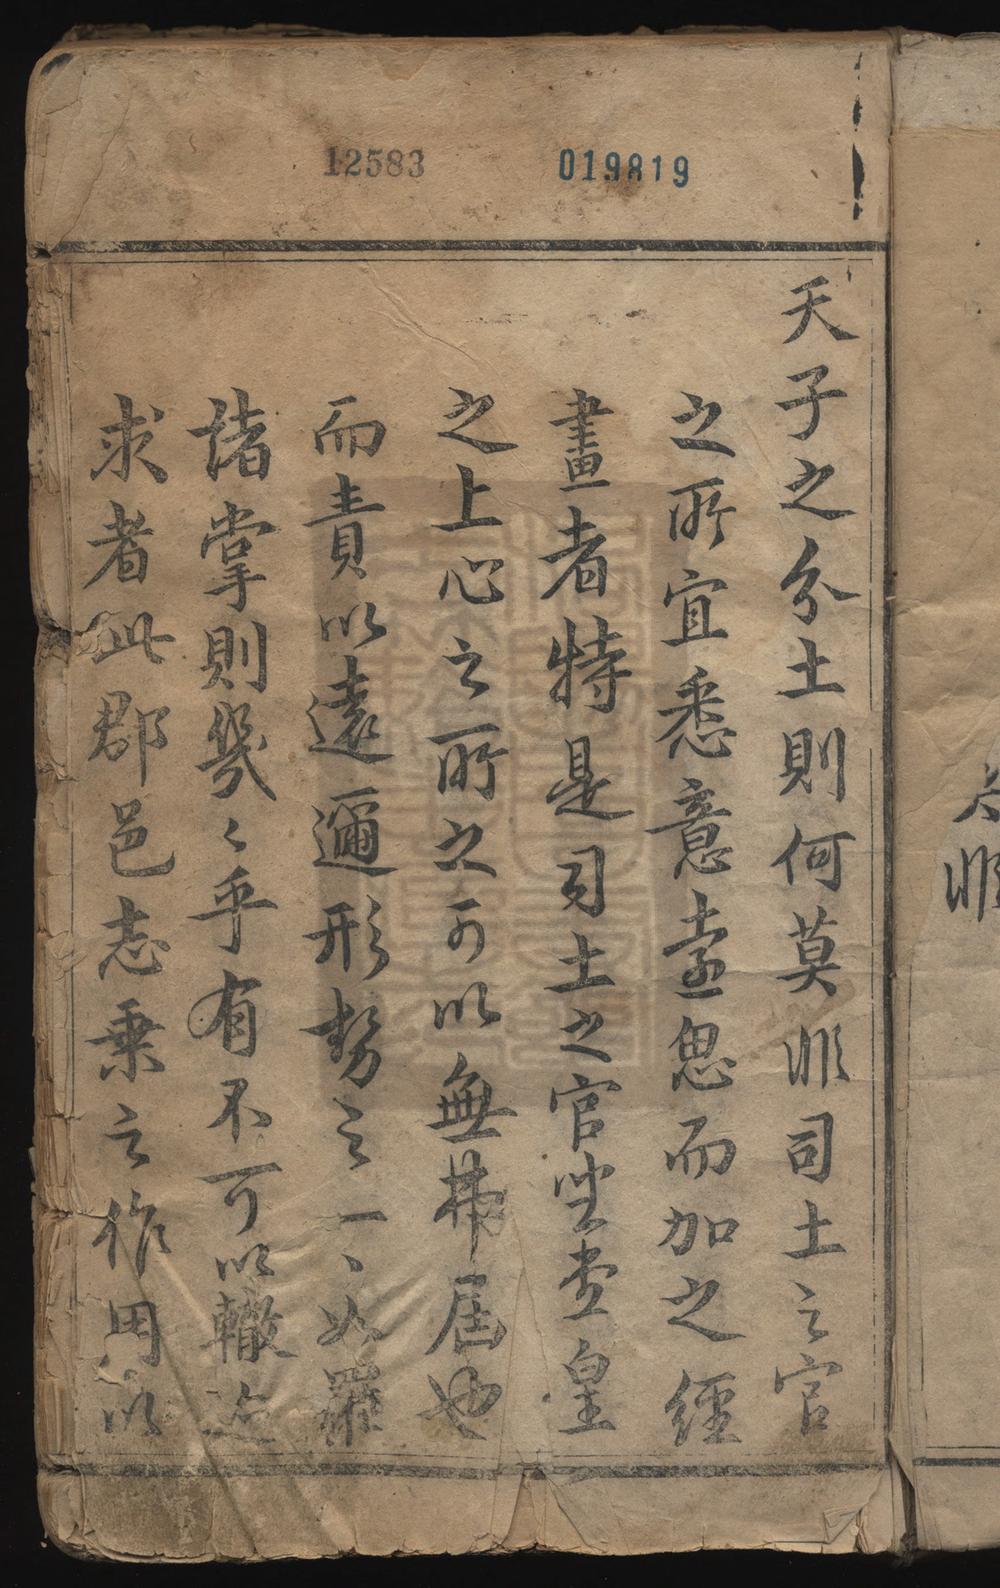 12583
019819
天子之分土則何莫非司土之官
之所宜悉意壹思而加之經
畫者特是司土之官坐堂皇
之上心之所之可以無弗屆也
而責以遠邇形勢之一、如羅
諸掌則幾、乎有不可以轍迹
求者此郡邑志乘之作用以
非